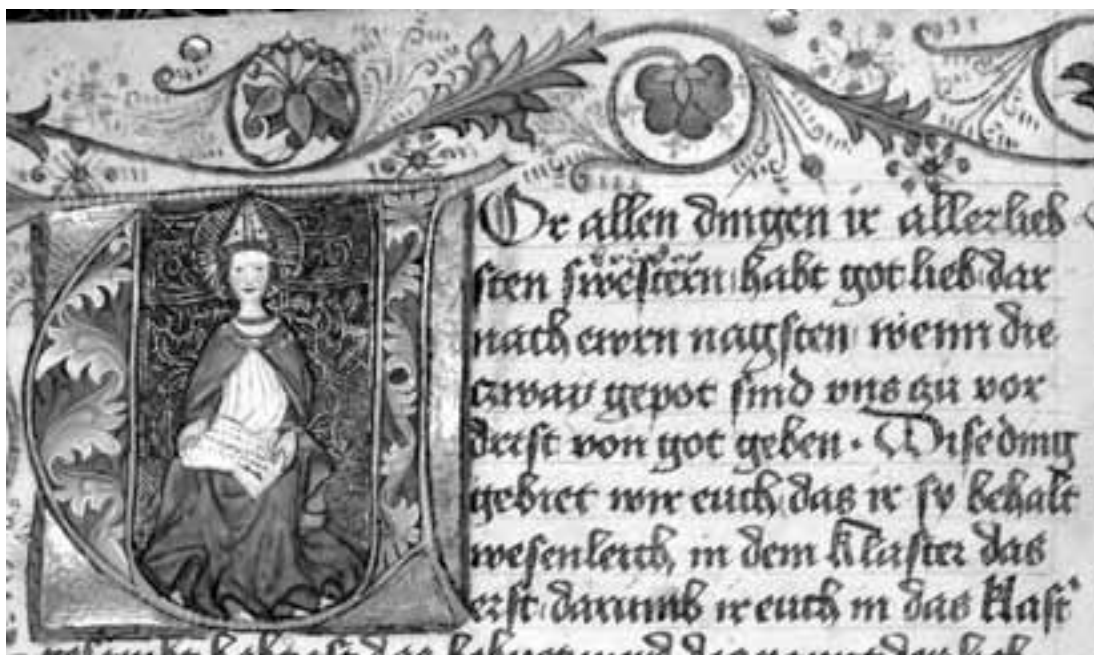 Or allen dingen ir allerlieb
brüder
sten swestern habt got lieb dar
nach ewrn nagsten wenn die
czway gepot sind vns zu vor
drist von got geben. Dise ding
gebiet wir euch das ir sy behalt
wesenleich in dem klaster das
erst darumb ir euch in das klast